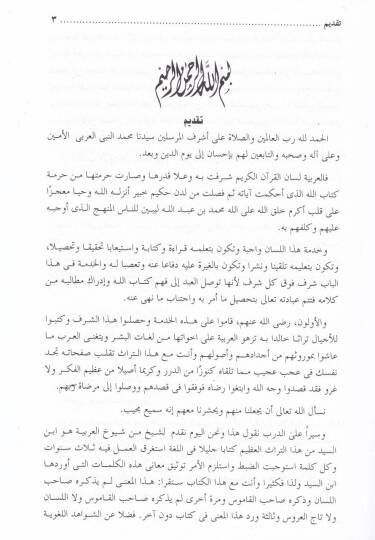 تقديم ٣
بسم الله الرحمن الرحيم
تقديم
الحمد لله رب العالمين والصلاة على أشرف المرسلين سيدنا محمد النبى العربى الأمين
وعلى آله وصحبه والتابعين لهم بإحسان إلى يوم الدين وبعد.
فالعربية لسان القرآن الكريم شرفت به وعلا قدرها وصارت حرمتها من حرمة
كتاب الله الذى أحكمت آياته ثم فصلت من لدن حكيم خبير أنزله الله وحيا معجزًا
على قلب أكرم خلق الله على الله محمد بن عبد الله ليبين للناس المنهج الذى أوجبه
عليهم وكلفهم به.
وخدمة هذا اللسان واجبة وتكون بتعلمه قراءة وكتابة واستيعابا تحقيقا وتحصيلا،
وتكون بتعليمه تلقينا ونشرا وتكون بالغيرة عليه دفاعا عنه وتعصبا له والخدمة فى هذا
الباب شرف فوق كل شرف لأنها توصل العبد إلى فهم كتاب الله وإدراك مطالبه من
كلامه فتتم عبادته تعالى بتحصيل ما أمر به واجتناب ما نهى عنه.
والأولون، رضى الله عنهم، قاموا على هذه الخدمة وحصلوا هذا الشرف وكتبوا
للأجيال تراثا خالدا به تزهو العربية على اخواتها من لغات البشر ويتغنى العرب ما
عاشوا بموروثهم من أجدادهم وأصولهم وأنت مع هذا التراث تقلب صفحاته تجد
نفسك فى عجب عجيب مما تلقاه كنوزًا من الدرر وكرما أصيلا من عظيم الفكر ولا
غرو فقد قصدوا وجه الله وابتغوا رضاه فوفقوا فى قصدهم ووصلوا إلى مرضاة ربهم.
نسأل الله تعالى أن يجعلنا منهم ويحشرنا معهم إنه سميع مجيب.
وسيرًا على الدرب نقول هذا ونحن اليوم نقدم لشيخ من شيوخ العربية هو ابن
السيد من هذا التراث العظيم كتابا جليلا فى اللغة استغرق العمل فيه ثلاث سنوات
وكل كلمة استوجبت الضبط واستلزم الأمر توثيق معانى هذه الكلمات التى أوردها
ابن السيد ولذا فكثيرا وأنت مع هذا الكتاب ستقرا: هذا المعنى لم يذكره صاحب
اللسان وذكره صاحب القاموس ومرة أخرى لم يذكره صاحب القاموس ولا اللسان
ولا تاج العروس وثالثة ورد هذا المعنى فى كتاب دون آخر. فضلا عن الشواهد اللغوية